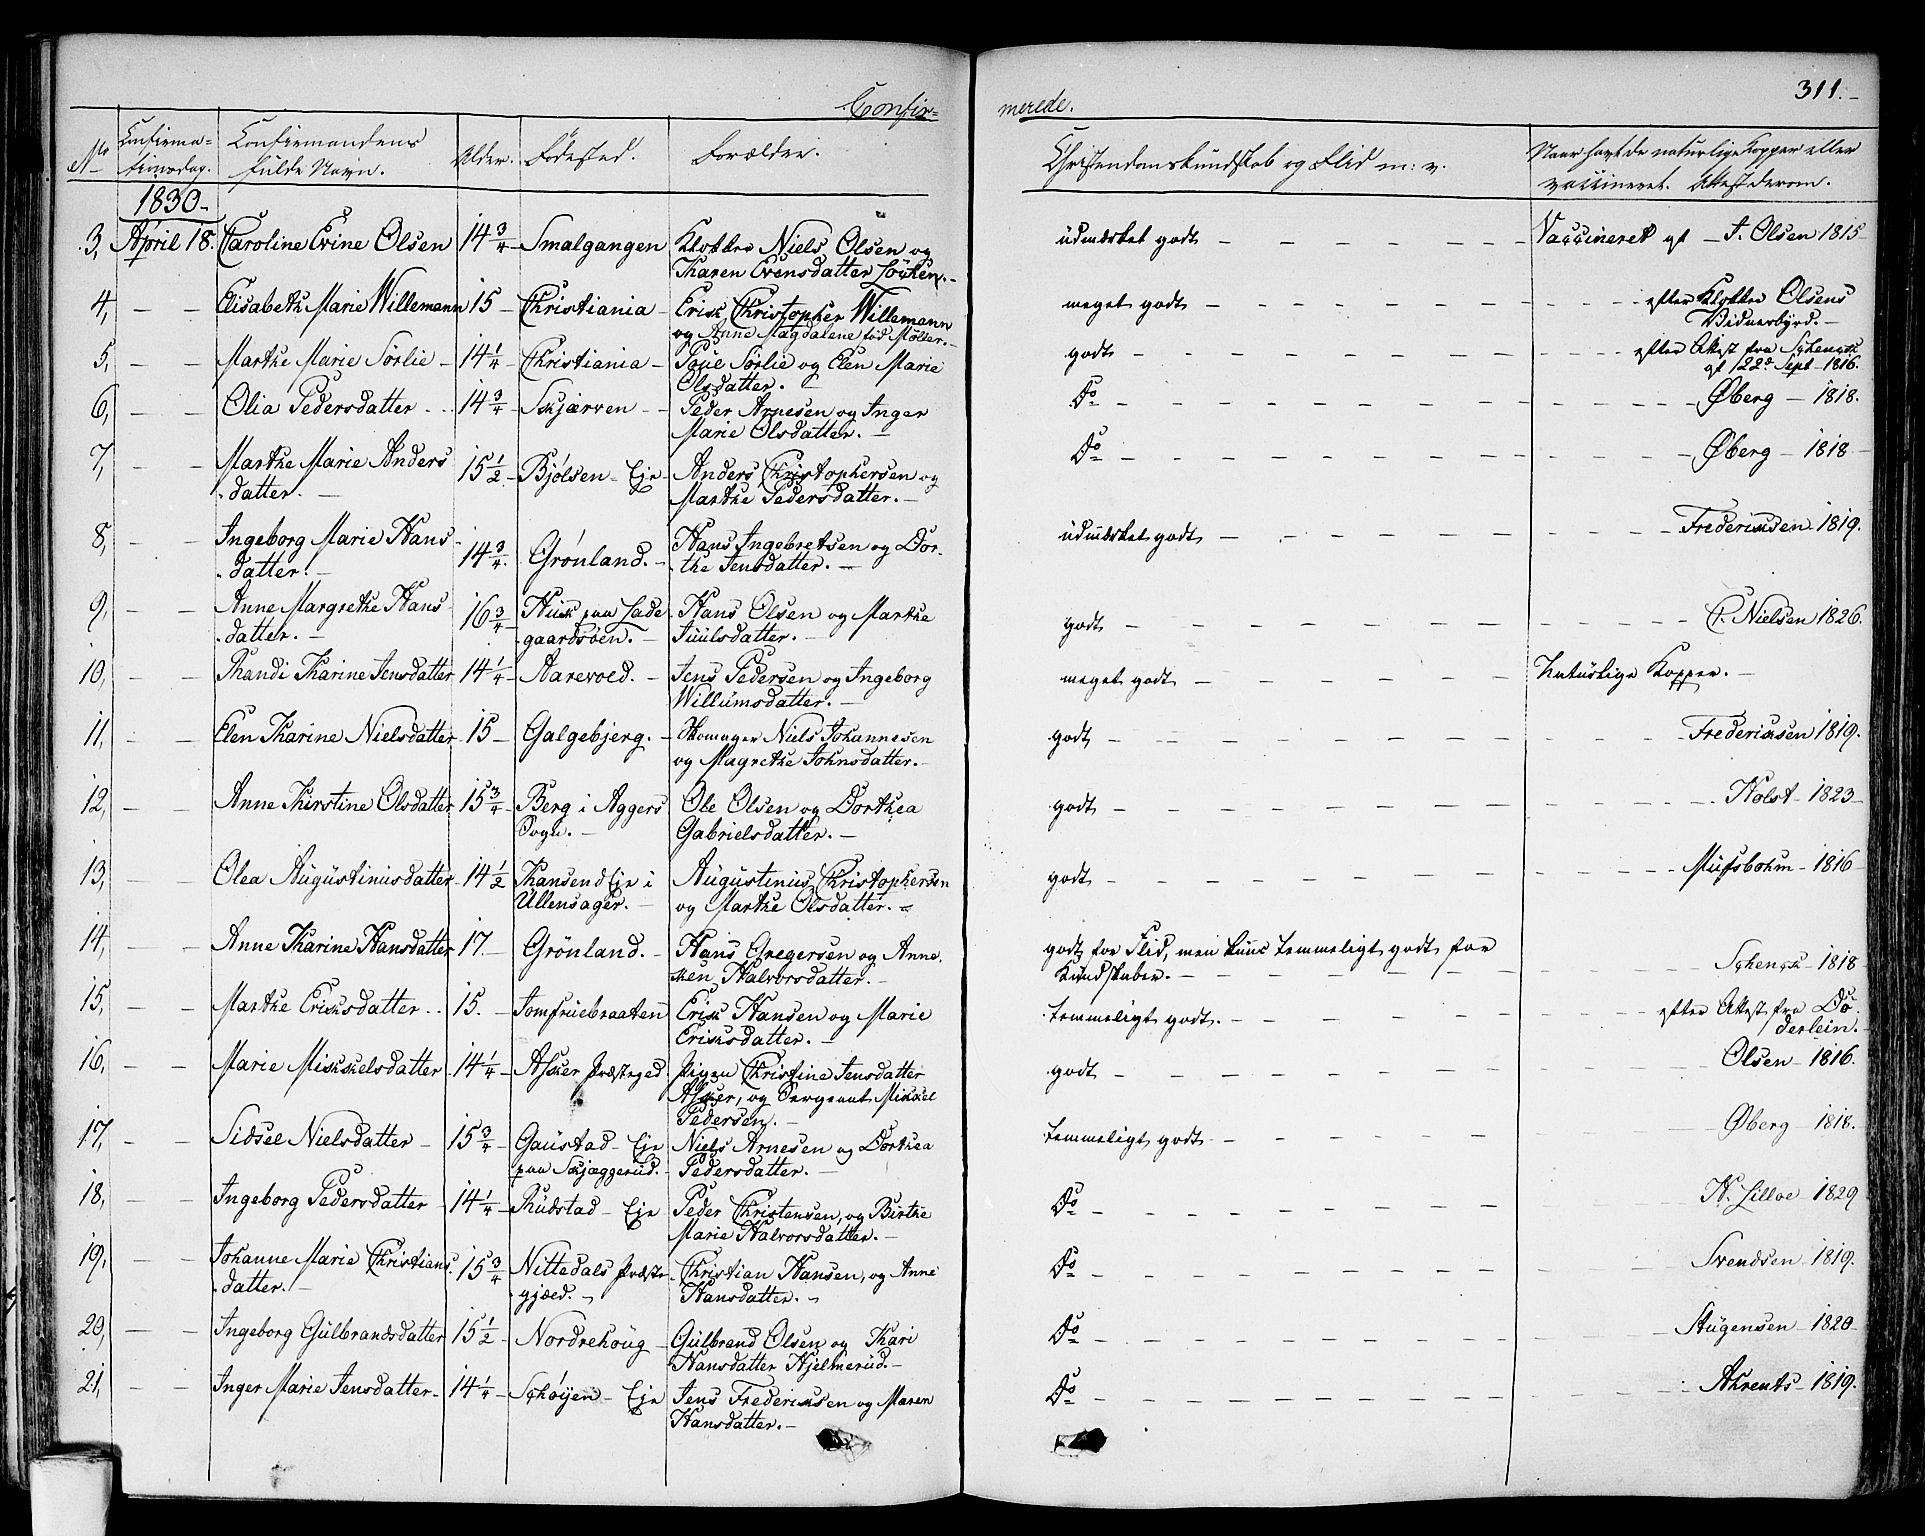 311.
Confir=
merede.
No
Confirma=
tionsdag.
Confirmandens
fulde Navn.
Alder.
Födested.
Forældre.
Christendomskundskab og Flid m: v.
Naar havt de naturlige Kopper eller
vaccineret. Attest derom.
1830.
3, April 18. Caroline Evine Olsen 14 3/4 Smalgangen Klokker Niels Olsen og
Karen Evensdatter Löcken.
udmærket godt Vaccineret af J. Olsen 1815
4, Elisabeth Marie Willemann 15 Christiania Erick Christopher Willemann
og Anne Magdalene föd Möller.
meget godt efter Klokker Olsens
Vidnesbyrd.
5, Marthe Marie Sörlie 14 1/4 Christiania Poul Sörlie og Elen Marie
Olsdatter.
godt efter Attest fra Schenck
af 22de Sept 1816.
6, Olia Pedersdatter 14 3/4 Skjærven Peder Arnesen og Inger
Marie Olsdatter.
Do Øberg 1818.
7, Marthe Marie Anders
datter. 15 1/2 Bjölsen Eje Anders Christophersen og
Marthe Pedersdatter.
Do Øberg 1818
8, Ingeborg Marie Hans
datter. 14 3/4 Grönland. Hans Ingebretsen og Dor
the Jensdatter.
udmærket godt Fredericksen 1819.
9, Anne Margrethe Hans
datter. 16 3/4 Husk paa Lade
gaardsöen. Hans Olsen og Marthe
Juulsdatter.
godt C. Nielsen 1826.
10, Randi Karine Jensdatter 14 1/4 Aarevold. Jens Pedersen og Ingeborg
Willumsdatter.
meget godt Naturlige Kopper.
11, Elen Karine Nielsdatter 15 Galgebjerg. Skomager Niels Johannesen
og Magrethe Johnsdatter.
godt Fredericksen 1819.
12, Anne Kirstine Olsdatter 15 3/4 Berg i Aggers
Sogn. Ole Olsen og Dorthea
Gabrielsdatter.
godt Holst 1823
13, Olea Augustinusdatter 14 1/2 Hansend Eje i
Ullensager. Augustinus Christophersen
og Marthe Olsdatter.
godt 1816
14, Anne Karine Hansdatter 17. Grönland. Hans Gregersen og Anne
cken Halvorsdatter.
godt for Flid, men kuns temmeligt godt for
Kundskaber. Schenck 1818
15, Marthe Ericksdatter 15. Jomfruebraaten Erick Hansen og Marie
Ericksdatter.
temmeligt godt. efter Attest fra Dö
derlein.
16, Marie Mickelsdatter 14 1/4 Asker Præsteged Pigen Christine Jensdatter
Asker, og Sergeant Mickel
Pedersen.
godt Olsen 1816.
17, Sidsel Nielsdatter 15 3/4 Gaustad Eje
paa Skjæggerud. Niels Arnesen og Dorthea
Pedersdatter.
temmeligt godt Øberg 1818.
18, Ingeborg Pedersdatter 14 1/4 Rudstad Eje Peder Christensen, og Birthe
Marie Halvorsdatter.
Do N. Lilloe 1829
19, Johanne Marie Christians
datter. 15 3/4 Nittedals Præste
gjæld. Christian Hansen, og Anne
Hansdatter.
Do Svendsen 1819.
20, Ingeborg Gulbrandsdatter 15 1/2 Nordrehoug Gulbrand Olsen og Kari
Hansdatter Hjelmerud.
Do Stügensen 1820
21, Inger Marie Jensdatter 14 1/4 Schöyen Eje Jens Fredericksen og Maren
Hansdatter.
Do Ahrents 1819.